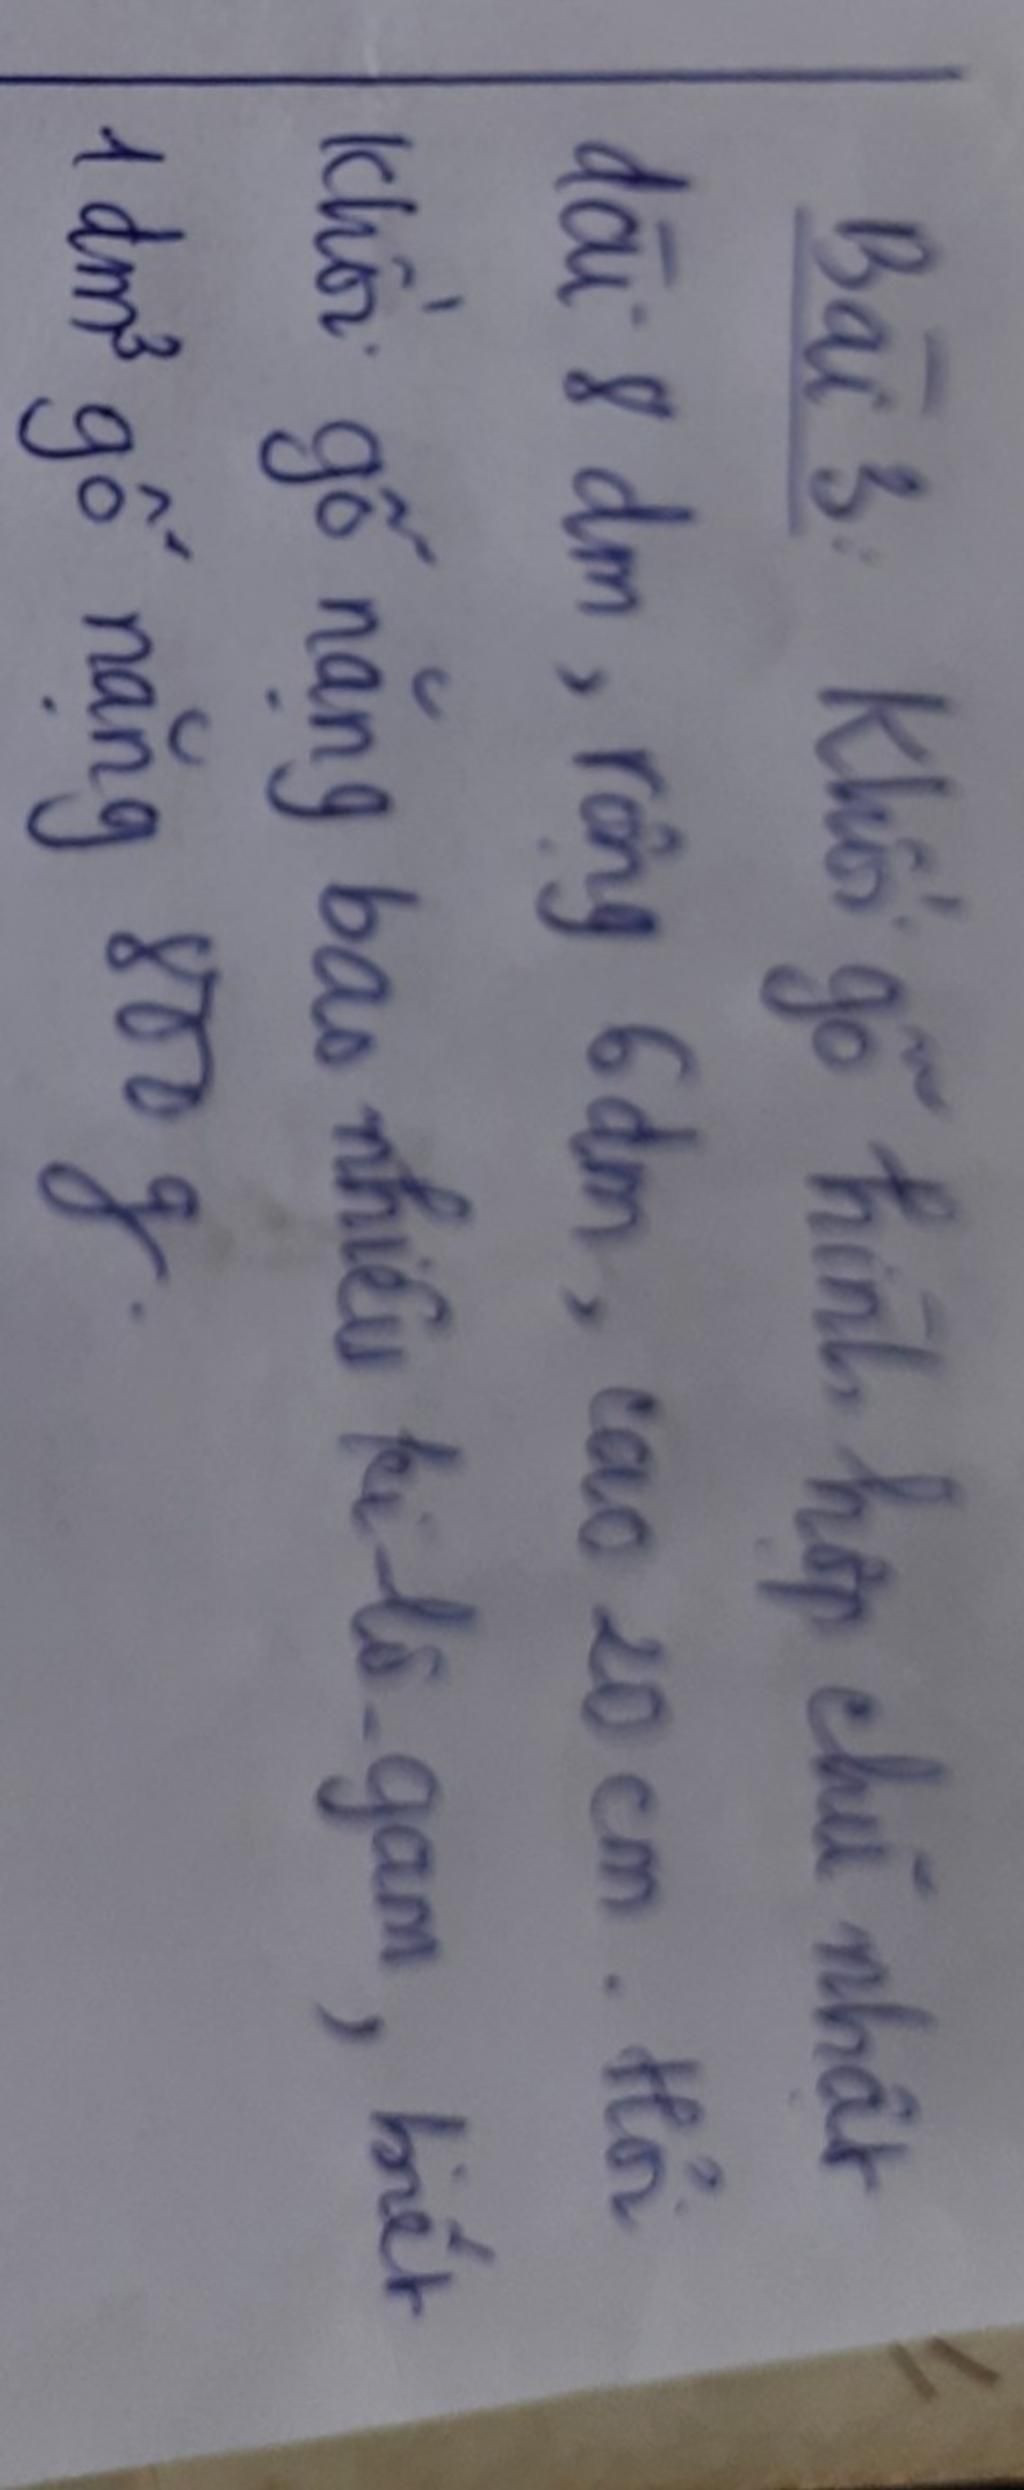 Bài 3: Khối gỗ hình hộp chữ nhật
dài 8 dm, rộng 6 dm, cao 20 cm. Hỏi
khối gỗ nặng bao nhiêu ki-lô-gam, biết
1 dm³ gố nặng 800 g.